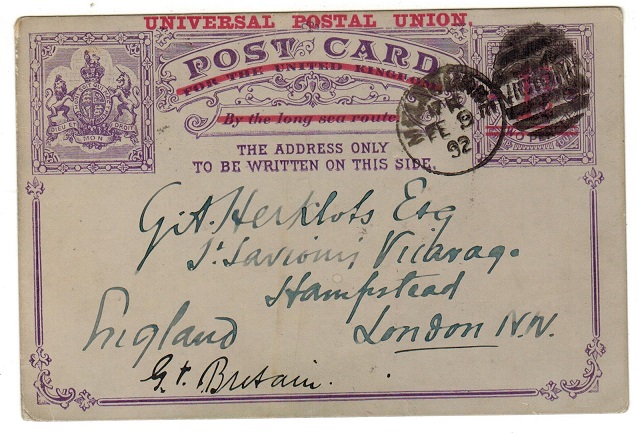 UNIVERSAL POSTAL UNION.
POST CARD
FOR THE UNITED KINGDOM
By the long sea route
THE ADDRESS ONLY
TO BE WRITTEN ON THIS SIDE.
FE 9
92
G. A. Herklots Esq
St Saviours Vicarage
Hampstead
London N.W.
England
Gt. Britain.